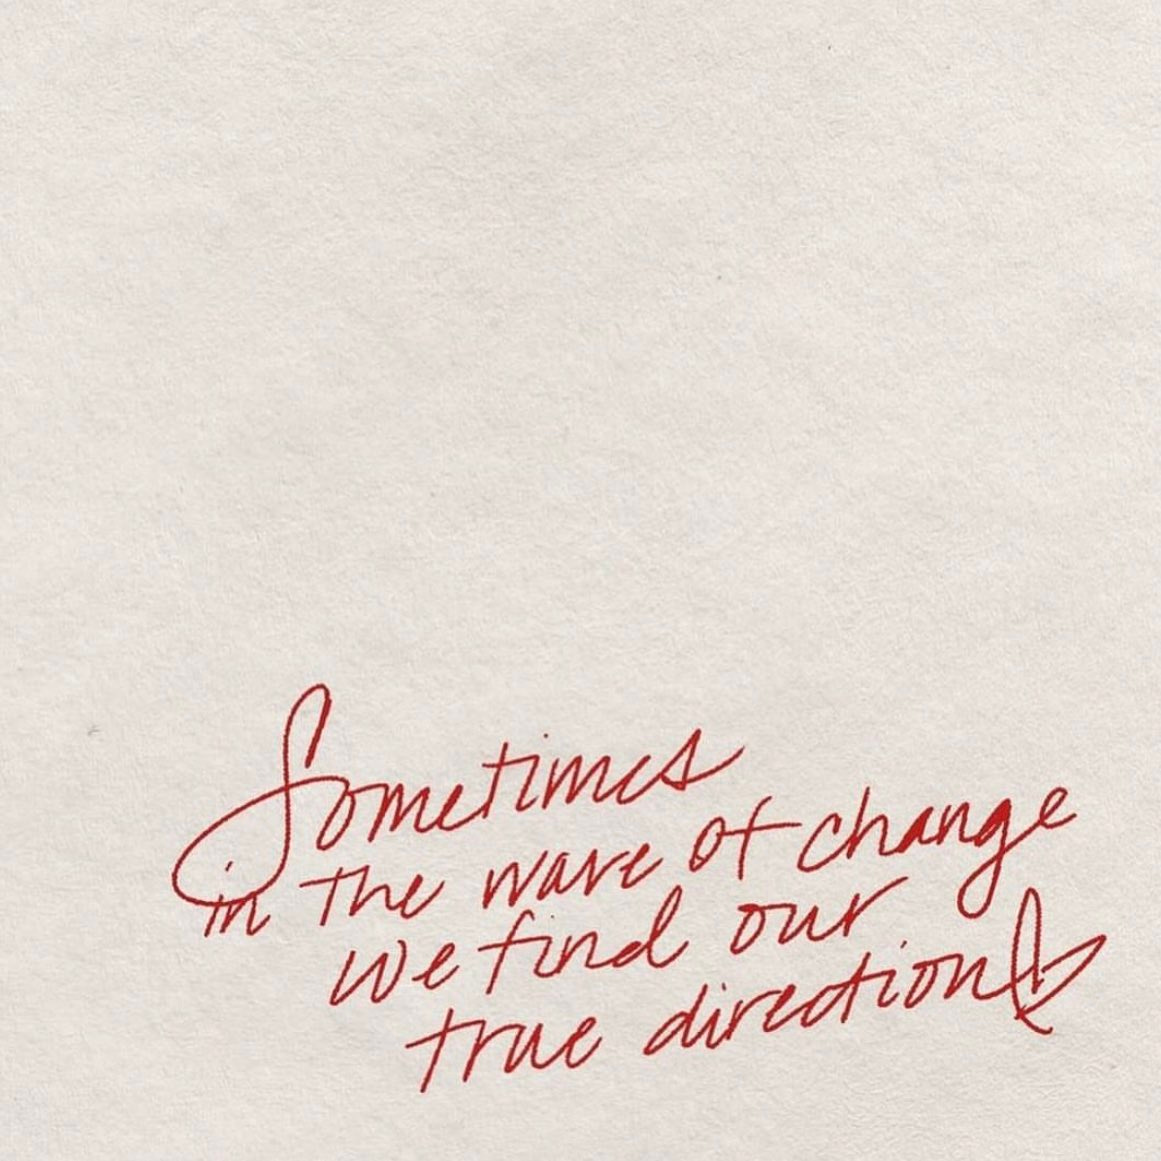 Sometimes
in the wave of change
we find our
true direction